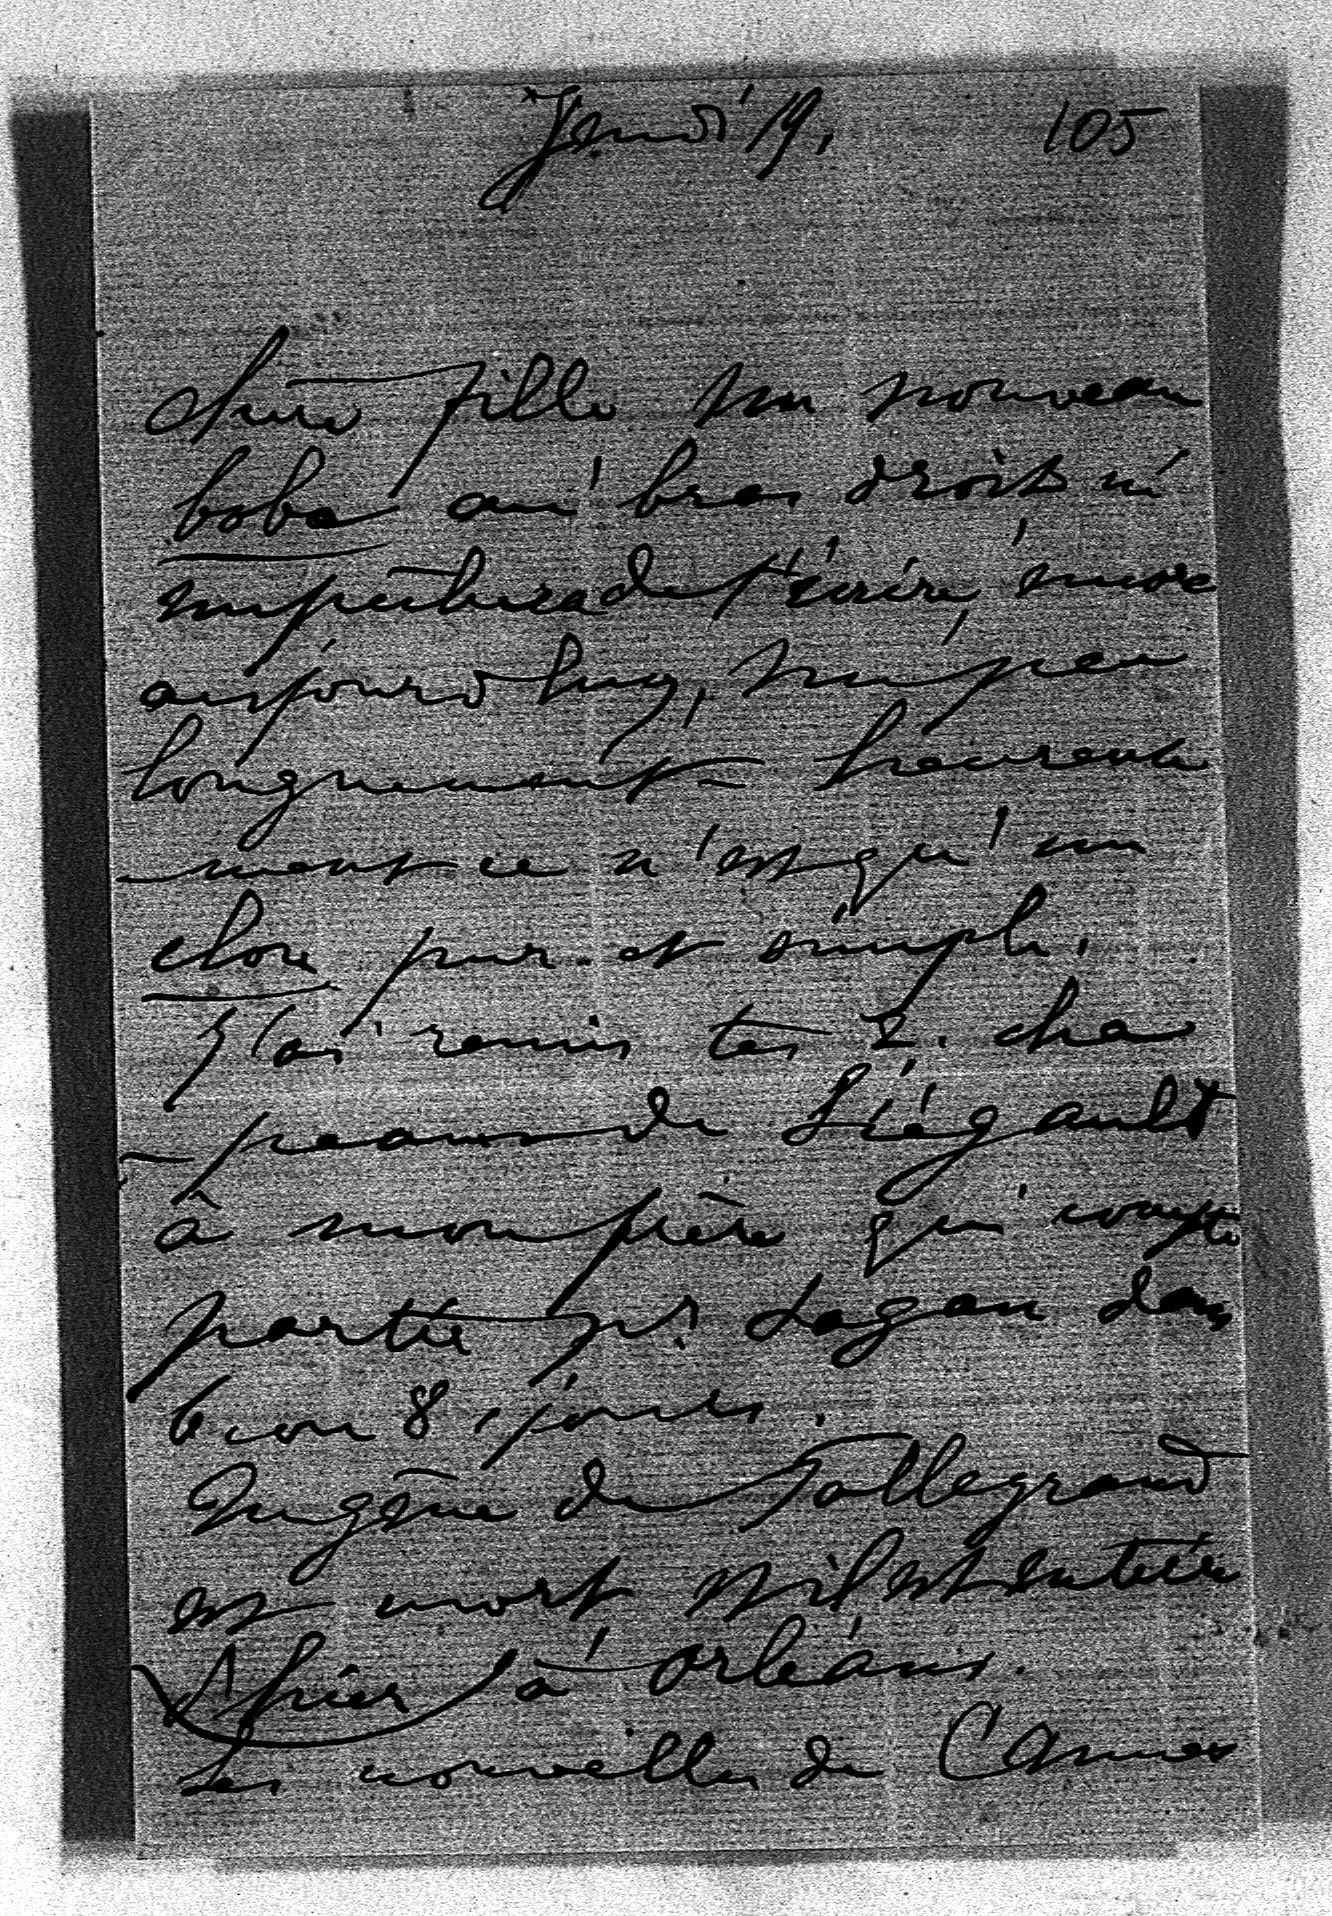 Jeudi 19. 105
chère fille un nouveau
bobo au bras droit m'
empêchera de t'écrire, encore
aujourd'huy, un peu
longuement – heureuse
ment ce n'est qu'un
clou pur et simple.
J'ai remis tes 2. cha
-peaux de Liégault
à mon frère qui compte
partir pr. Sagan dans
6 ou 8 jours.
Eugène de Tallegrand
est mort, il est enterré
hier à Orléans.
Les nouvelles de Cannes